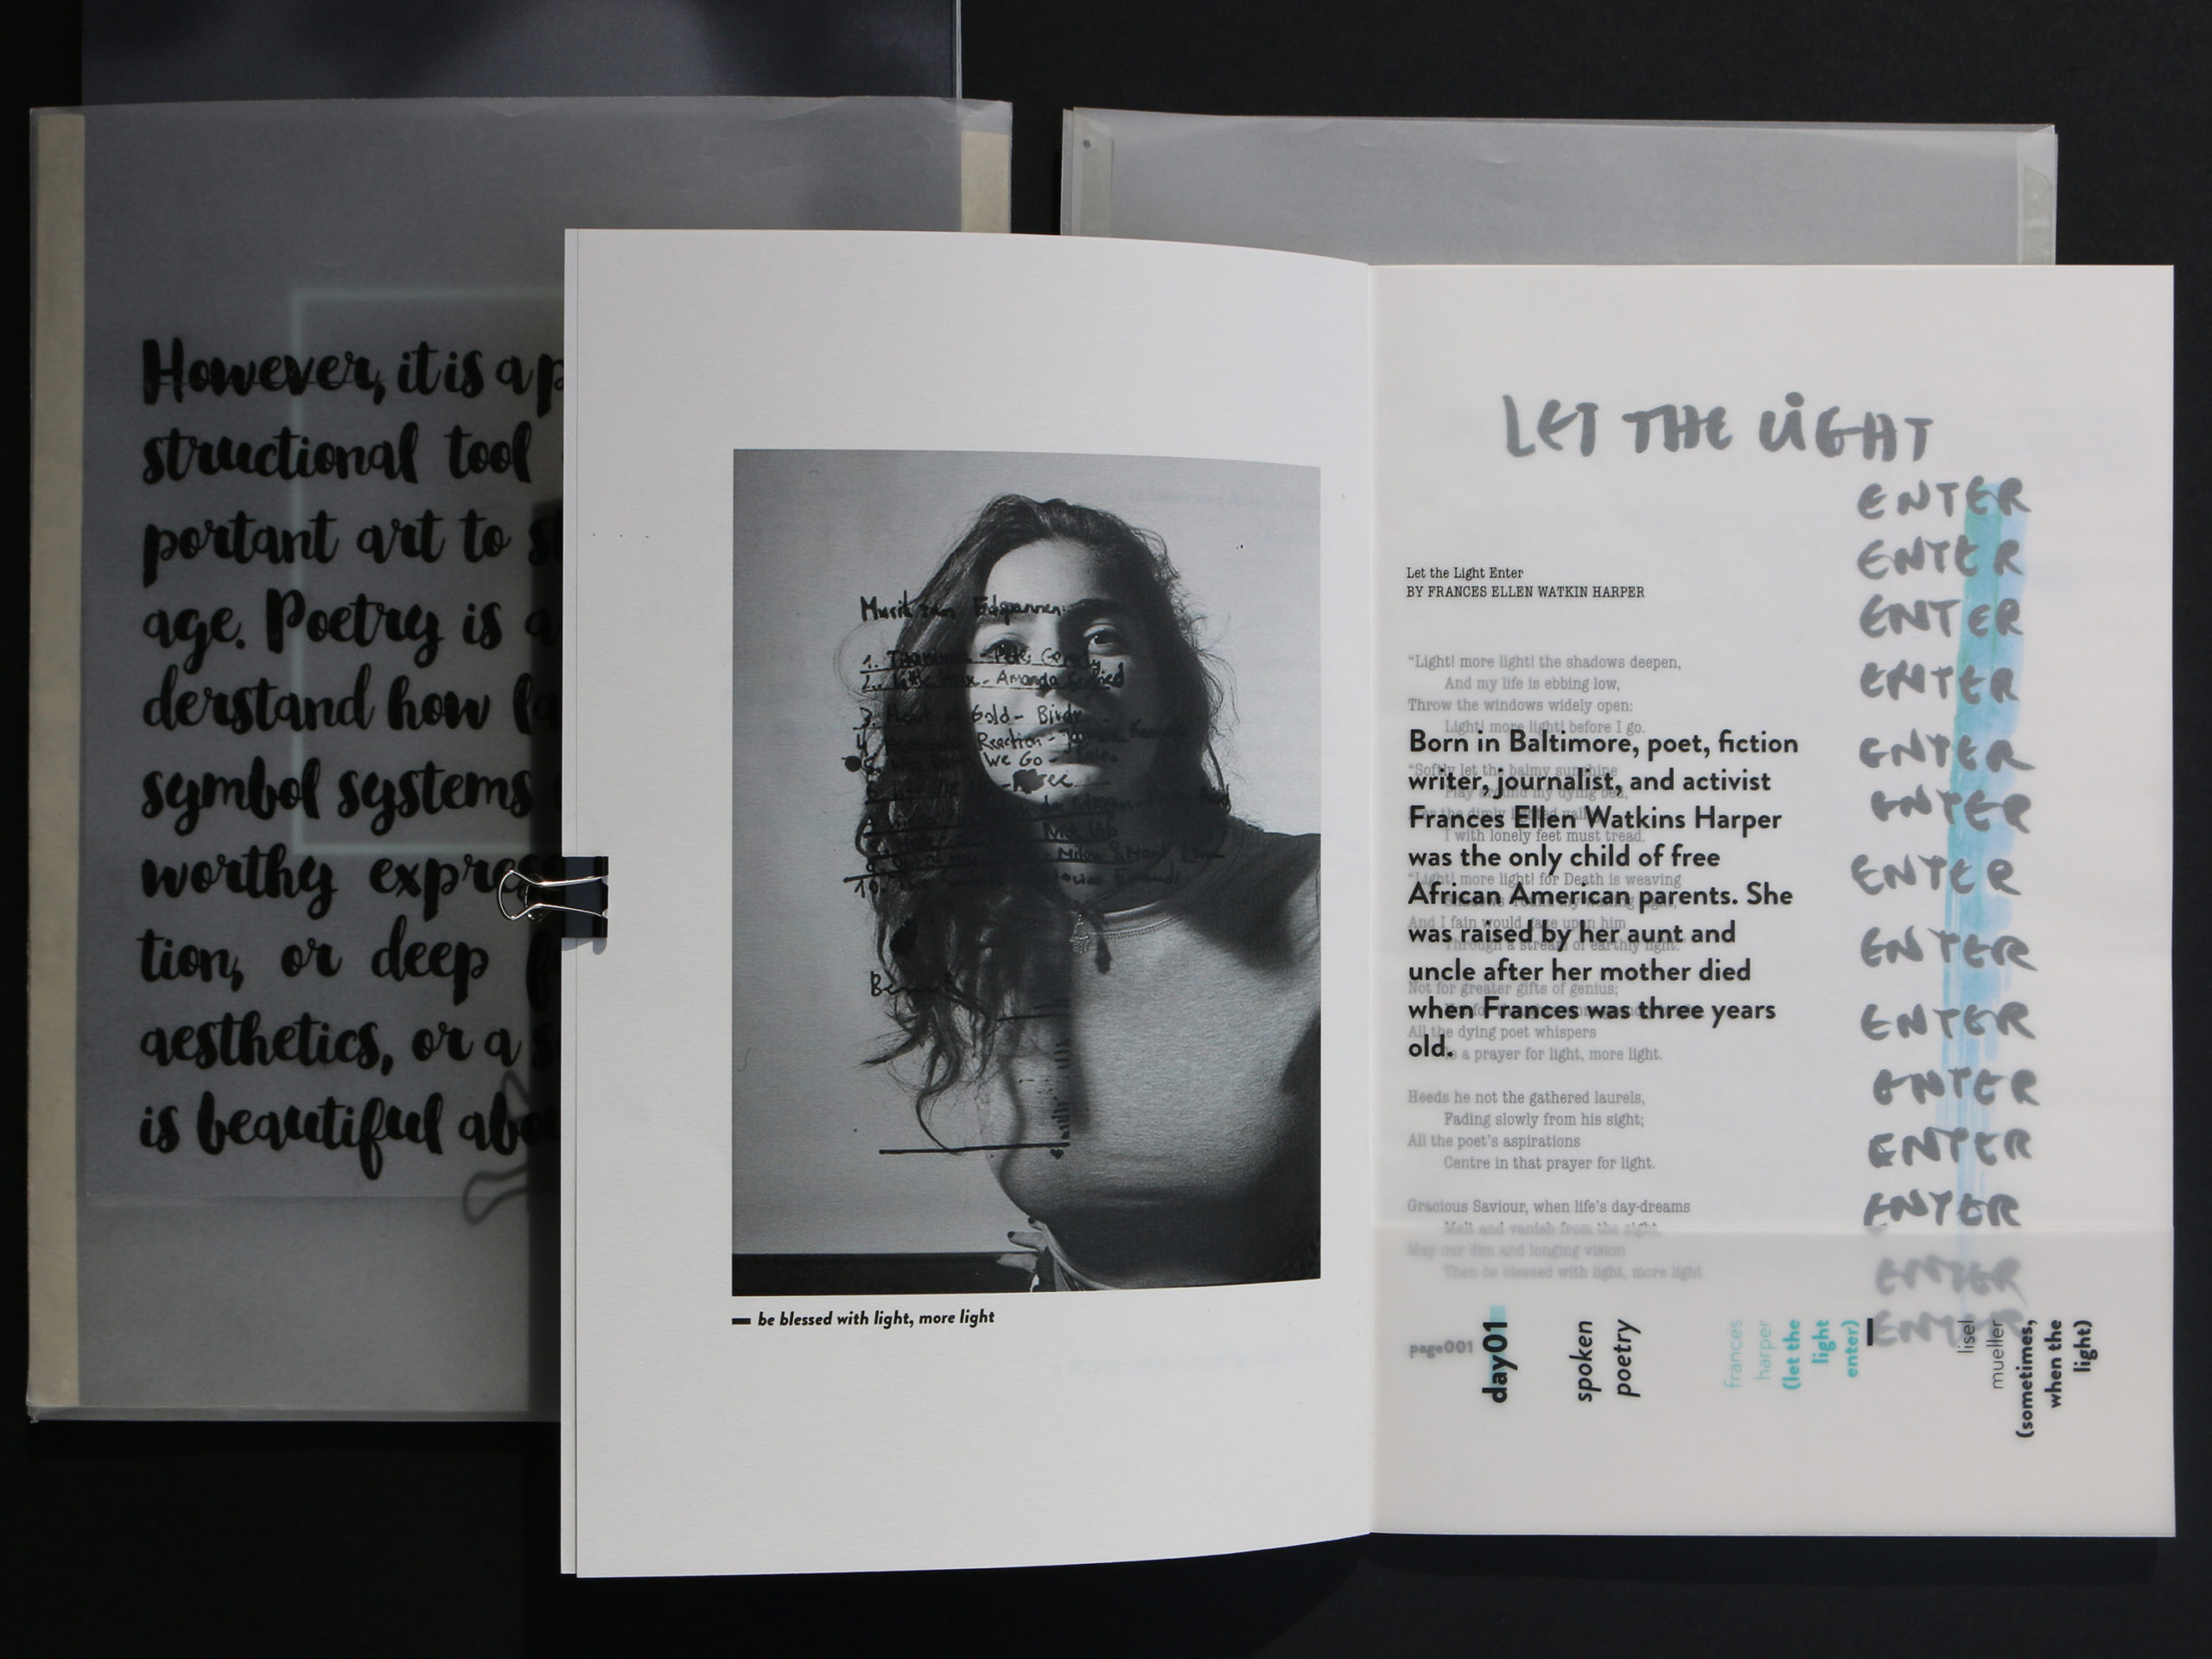 However, it is a
structional tool
portant art to
age. Poetry is a
derstand how
symbol systems
worthy
tion, or deep
aesthetics, or a
is beautiful
Musik zum
1. - Pete
2. - Amanda
3. Gold - Birdy
4. Reaction -
We Go -
10.
be blessed with light, more light
LET THE LIGHT
ENTER
ENTER
ENTER
ENTER
ENTER
ENTER
ENTER
ENTER
ENTER
ENTER
ENTER
ENTER
ENTER
ENTER
Let the Light Enter
BY FRANCES ELLEN WATKIN HARPER
“Light! more light! the shadows deepen,
And my life is ebbing low,
Throw the windows widely open:
Light! more light! before I go.
“Softly let the balmy sunshine
Play around my dying bed,
the dimly
I with lonely feet must tread.
“Light! more light! for Death is weaving
And I fain would gaze upon him
Through a stream of earthly light.”
Not for greater gifts of genius;
All the dying poet whispers
Is a prayer for light, more light.
Heeds he not the gathered laurels,
Fading slowly from his sight;
All the poet’s aspirations
Centre in that prayer for light.
Gracious Saviour, when life’s day-dreams
Melt and vanish from the sight,
May our dim and longing vision
Then be blessed with light, more light
Born in Baltimore, poet, fiction
writer, journalist, and activist
Frances Ellen Watkins Harper
was the only child of free
African American parents. She
was raised by her aunt and
uncle after her mother died
when Frances was three years
old.
page001
day01
spoken
poetry
frances
harper
(let the
light
enter)
lisel
mueller
(sometimes,
when the
light)